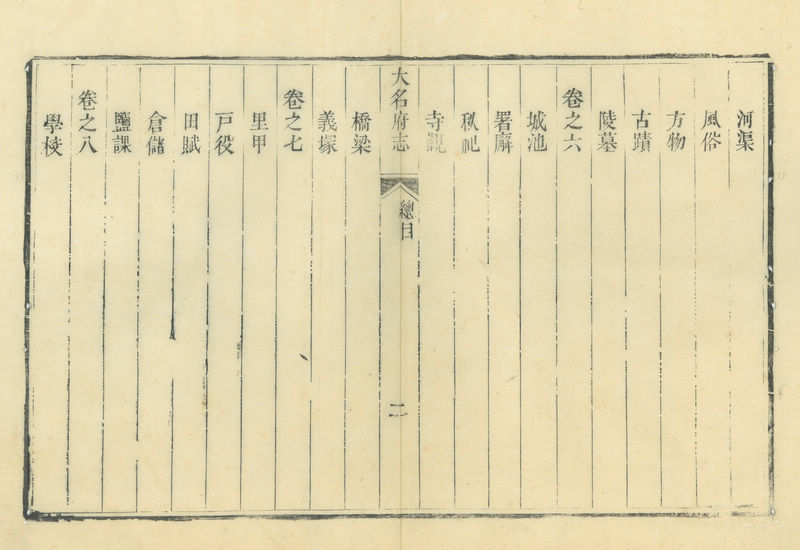 河渠
風俗
方物
古蹟
陵墓
卷之六
城池
署廨
秩祀
寺觀
大名府志
總目
二
橋梁
義塚
卷之七
里甲
戸役
田賦
倉儲
鹽課
卷之八
學校